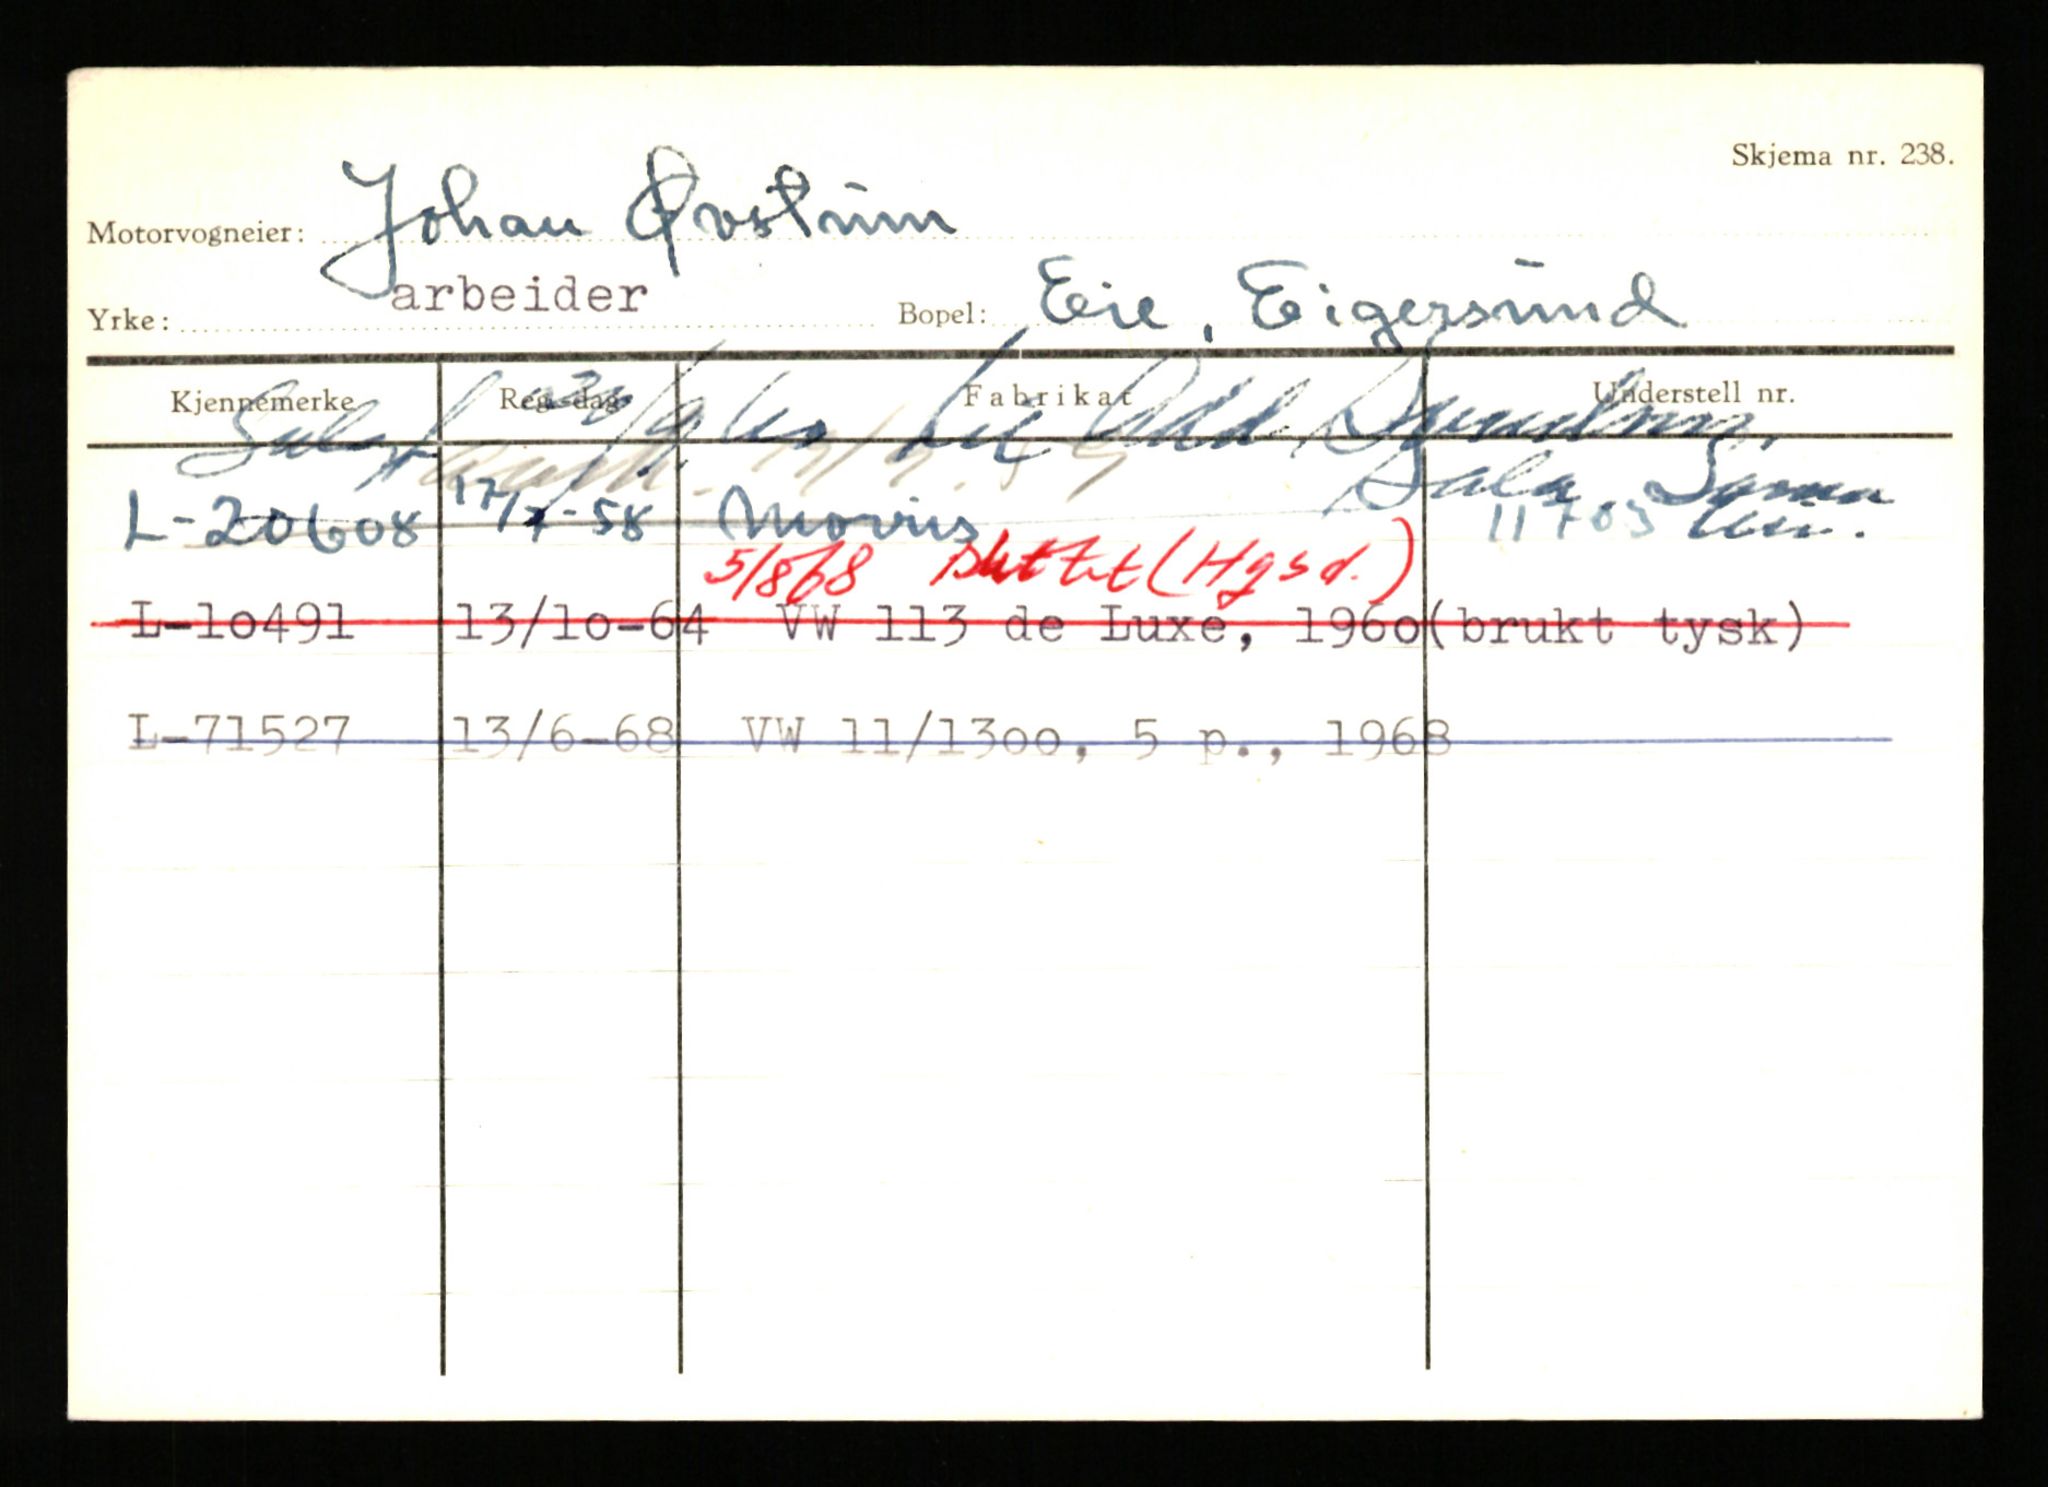 Skjema nr. 238.
Motorvogneier: Johan Øvstum
Yrke: arbeider Bopel: Eie, Eigersund
Kjennemerke Reg.-dag Fabrikat Understell nr.
Solgt til Odd
L-20608 17/7-58 Morris 11703
5/8 68 slettet (Hgsd.)
L-10491 13/10-64 VW 113 de Luxe, 1960 (brukt tysk)
L-71527 13/6-68 VW 11/1300, 5 p., 1968